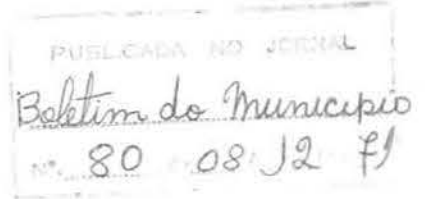 PUBLICADA NO JORNAL
Boletim do Municipio
Nº. 80 08/12 71